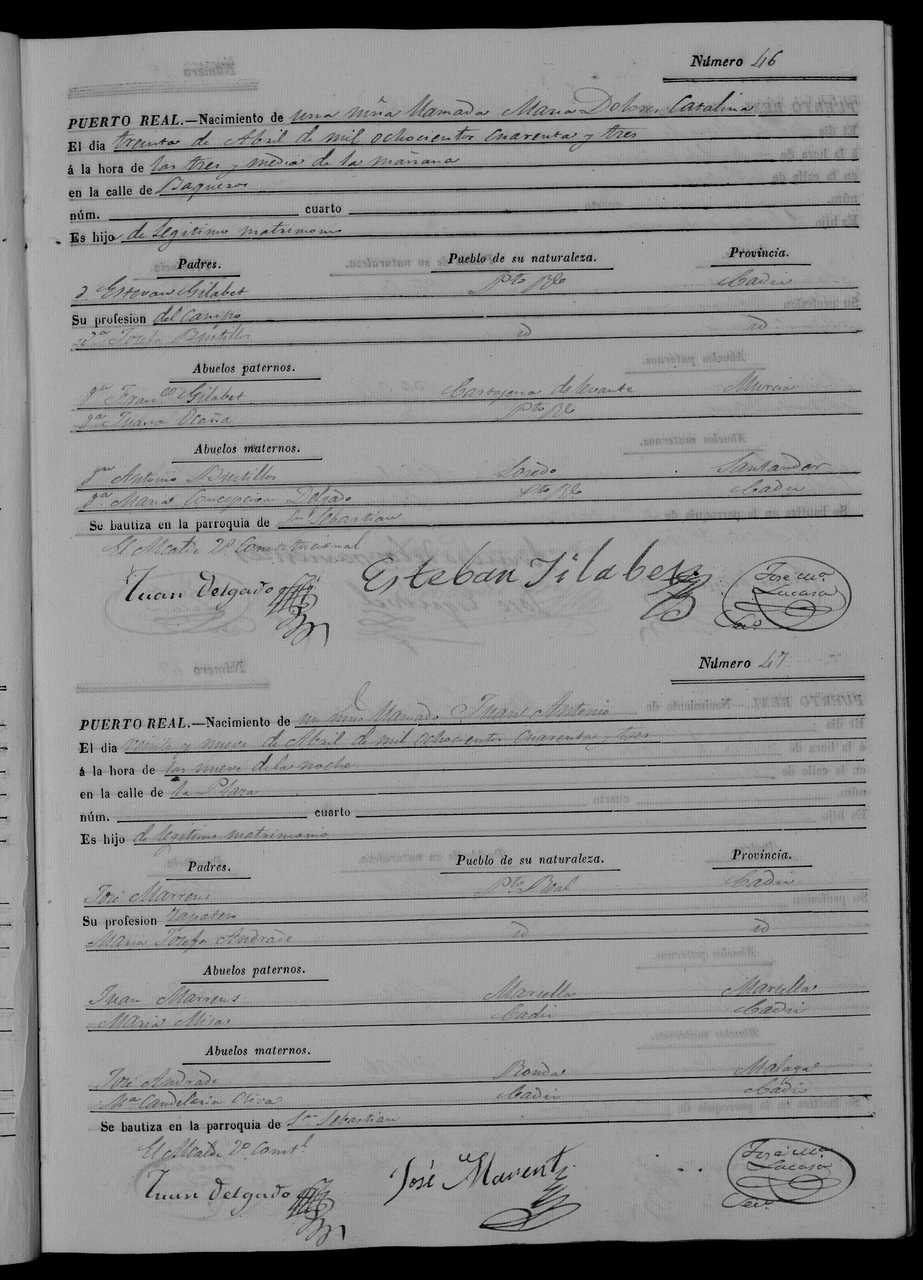 Número 46
PUERTO REAL.—Nacimiento de una niña llamada Maria Dolores Catalina
El dia treinta de Abril de mil ochocientos cuarenta y tres
á la hora de las tres y media de la mañana
en la calle de Baqueros
núm. cuarto
Es hijo de legitimo matrimonio
Padres. Pueblo de su naturaleza. Provincia.
Dn Estevan Gilabet Pto Rl Cadiz
Su profesion del Campo
Da Josefa Bustillos id id
Abuelos paternos.
Dn Franco Gilabet Cartagena de levante Murcia
Da Juana Ocaña Pto Rl
Abuelos maternos.
Dn Antonio Bustillos Laredo Santander
Da Maria Concepcion Delgado Pto Rl Cadiz
Se bautiza en la parroquia de Sn Sebastian
El Alcalde 2º Constitucional
Juan Delgado Esteban Jilabert José Ma Lucasa Sro
Número 47
PUERTO REAL.—Nacimiento de un niño llamado Juan Antonio
El dia veinte y nueve de Abril de mil ochocientos cuarenta y tres
á la hora de las nueve de la noche
en la calle de la Plaza
núm. cuarto
Es hijo de legitimo matrimonio
Padres. Pueblo de su naturaleza. Provincia.
José Marrens Pto Real Cadiz
Su profesion Zapatero
Maria Josefa Andrade id id
Abuelos paternos.
Juan Marrens Marsella Marsella
Maria Cadiz Cadiz
Abuelos maternos.
José Andrade Ronda Malaga
Ma Candelaria Oliva Cadiz Cádiz
Se bautiza en la parroquia de Sn Sebastian
El Alcalde 2º Constl
Juan Delgado José Marent José Ma Lucasa Sro